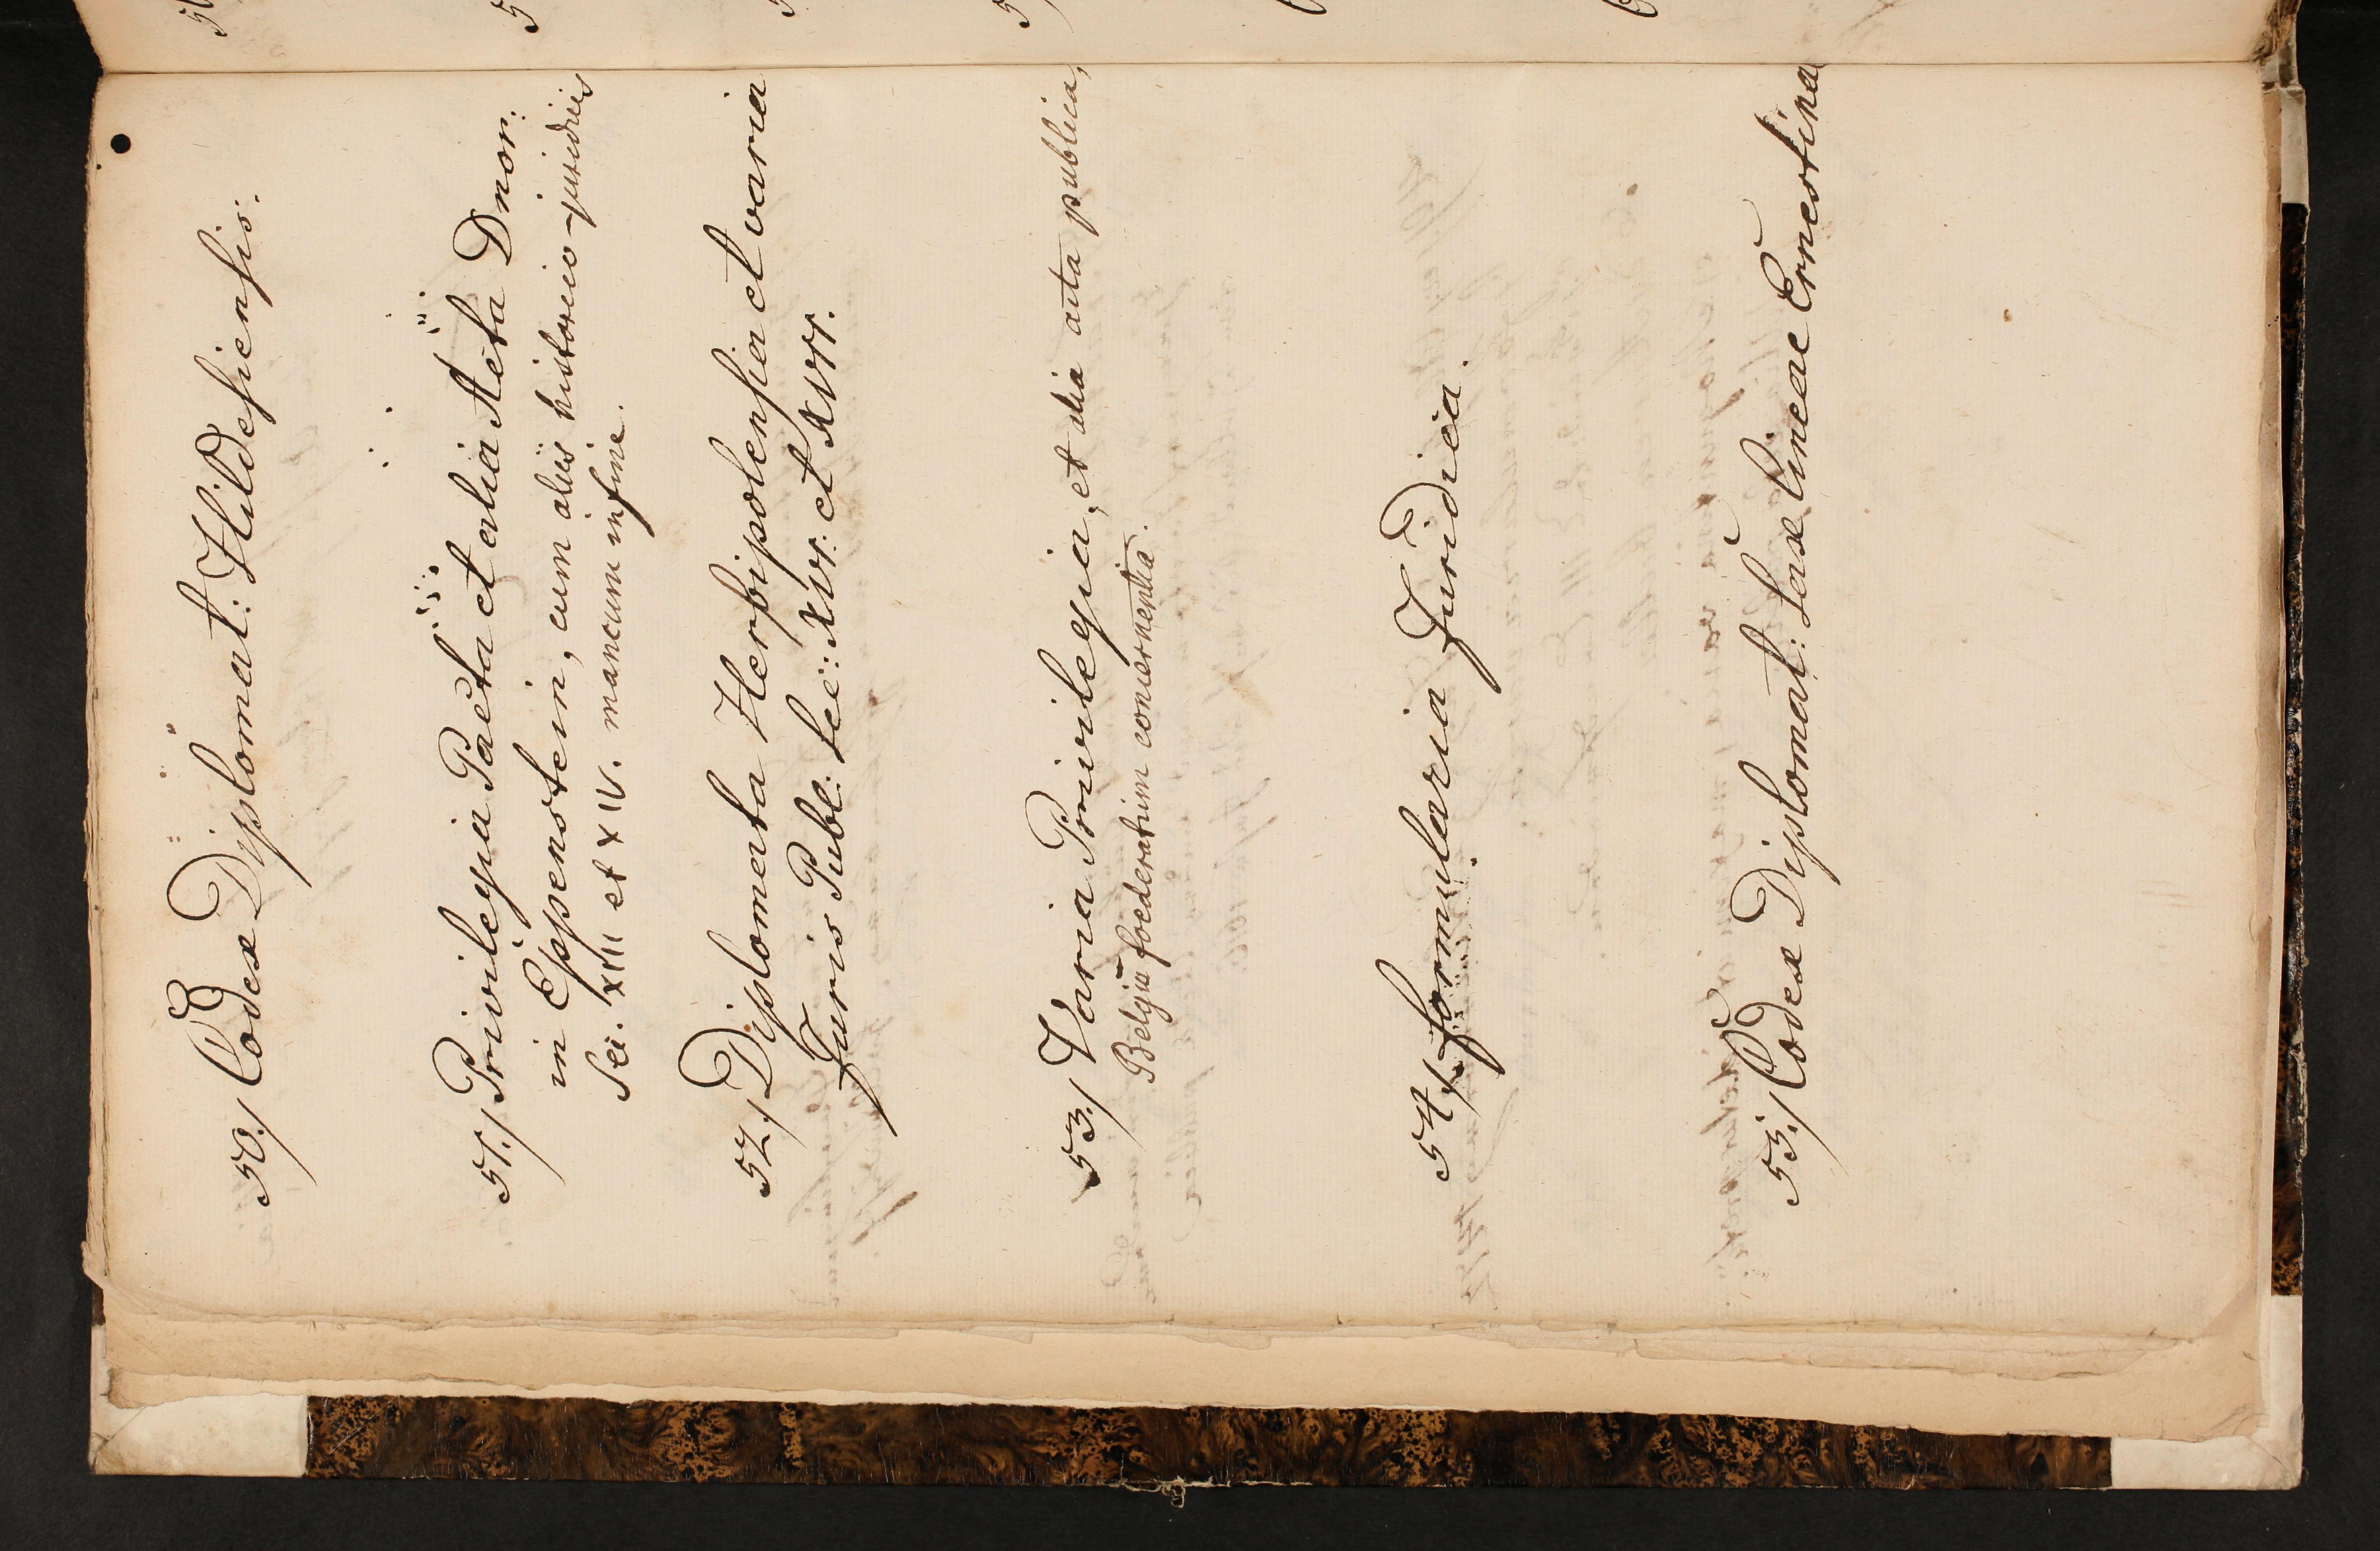 50./ Codex Diplomat: Hildesiensis.
51./ Privilegia Pacta et alia Acta Dnor:
in Eppenstein, cum aliis historico-juridicis
Sec. XIII et XIV. mancum in fine.
52./ Diplomata Herbipolensia et varia
Juris Publ: Sec: XVI. et XVII.
53./ Varia Privilegia, et alia acta publica,
Belgiū foederatum concernentia.
54./ Formularia Juridica.
55./ Codex Diplomat: Saxe Lineae Ernestinae